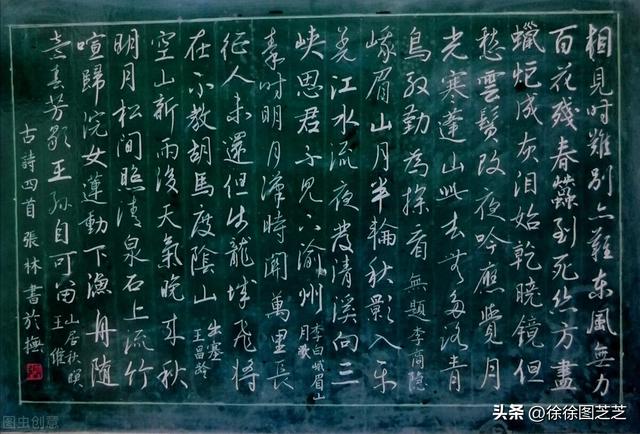 相見时難别亦難東風無力
百花殘春蠶到死丝方盡
蠟炬成灰泪始乾曉鏡但
愁雲鬓改夜吟應覺月
光寒蓬山此去無多路青
鳥殷勤為探看 無題李商隐
峨眉山月半輪秋影入平
羌江水流夜發清溪向三
峡思君不見下渝州 李白峨眉山
月歌
秦时明月漢時關萬里長
征人未還但使龍城飛将
在不教胡馬度陰山 出塞
王昌龄
空山新雨後天氣晚来秋
明月松間照清泉石上流竹
喧歸浣女蓮動下漁舟随
意春芳歇王孙自可留 山居秋暝
王维
古詩四首 張林書於撫
图虫创意
头条 @徐徐图芝芝